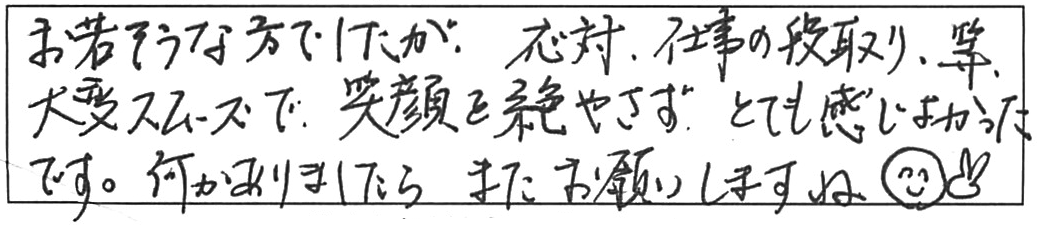 お若そうな方でしたが、応対、仕事の段取り、等、
大変スムーズで、笑顔を絶やさず、とても感じよかった
です。何かありましたら またお願いしますね